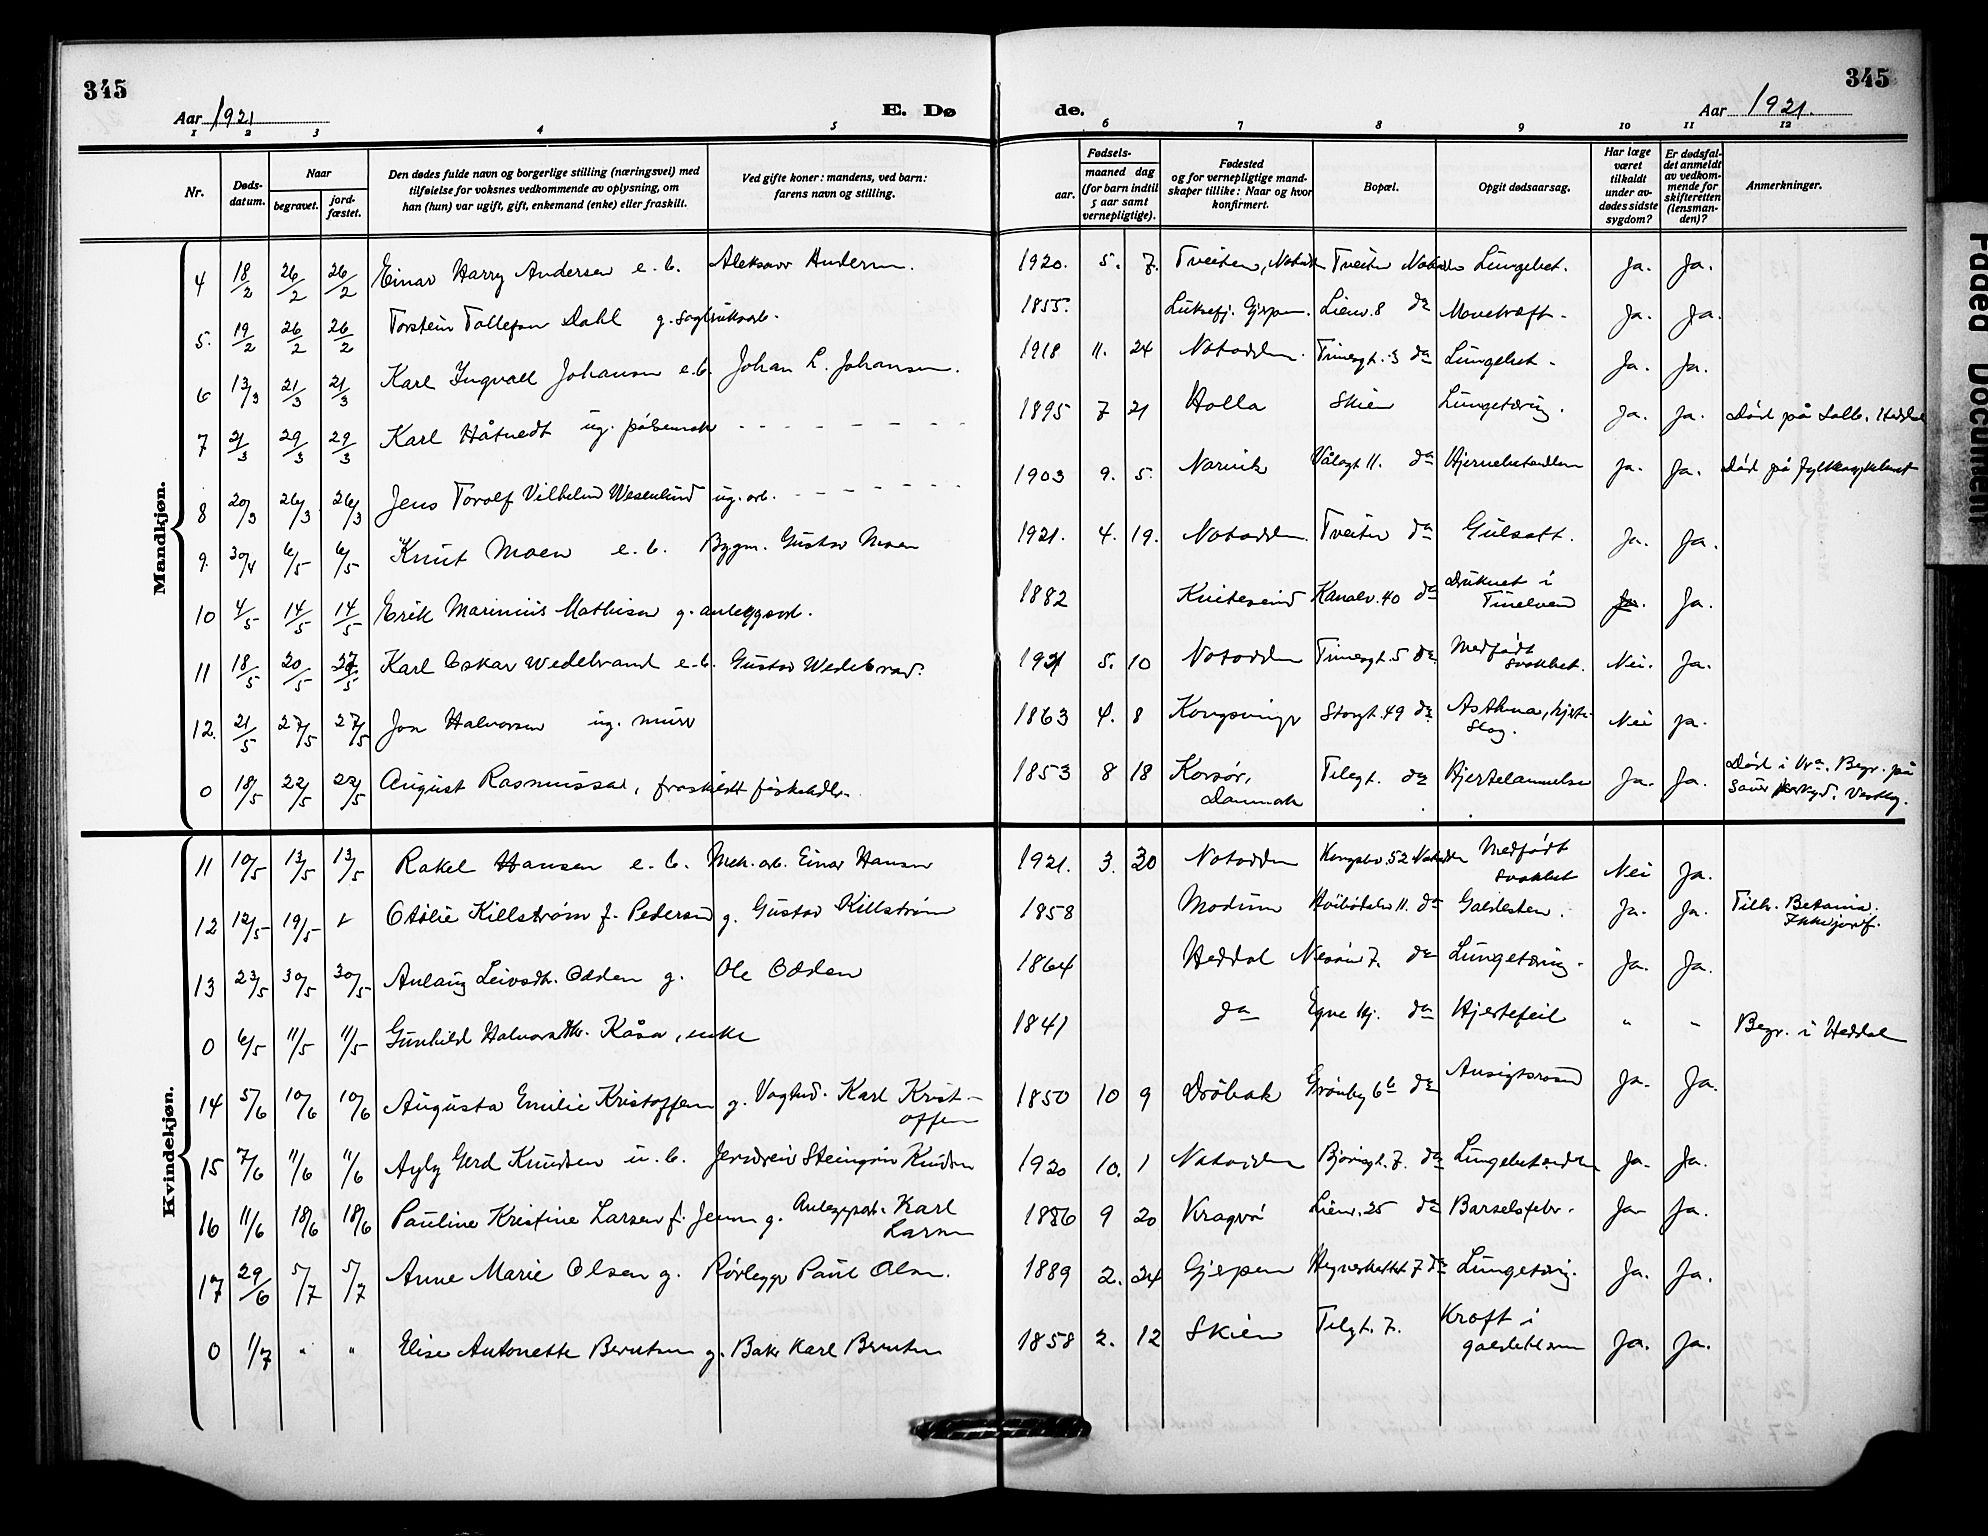 345
345
Aar 1921
E. Dø
de.
Aar 1921.
1 2 3 4 5 6 7 8 9 10 11 12
Nr.
Døds-
datum.
Naar
begravet.
jord-
fæstet.
Den dødes fulde navn og borgerlige stilling (næringsvei) med
tilføielse for voksnes vedkommende av oplysning, om
han (hun) var ugift, gift, enkemand (enke) eller fraskilt.
Ved gifte koner: mandens, ved barn:
farens navn og stilling.
Fødsels-
aar.
maaned dag
(for barn indtil
5 aar samt
vernepligtige).
Fødested
og for vernepligtige mand-
skaper tillike: Naar og hvor
konfirmert.
Bopæl.
Opgit dødsaarsag.
Har læge
været
tilkaldt
under av-
dødes sidste
sygdom?
Er dødsfal-
det anmeldt
av vedkom-
mende for
skifteretten
(lensman-
den)?
Anmerkninger.
Mandkjøn.
4 18/2 26/2 26/2 Einar Harry Andersen e. b. Aleksander Andersen. 1920. 5. 7. Tveiten, Tveiten Lungebet. Ja. Ja.
5. 19/2 26/2 26/2 Torstein Tollefsen Dahl g. sagbruksarb. 1855. Luksefj. Gjerpen. Lienv. 8 do Mavekræft. Ja. Ja.
6 13/3 21/3 21/3 Karl Ingvald Johansen e. b. Johan L. Johansen. 1918 11. 24 Notodden. 3 do Lungebet. Ja. Ja.
7 21/3 29/3 29/3 Karl Håtvedt ug. pølsemak 1895 7 21 Holla Skien Lungetæring. Ja. Ja. Død på Heddal
8 20/3 26/3 26/3 Jens Torolf Vilhelm Wesenlund ug. arb. 1903 9. 5. Narvik Vålagt 11. do Hjernebetændelse Ja. Ja. Død på fylkessykehuset
9. 30/4 6/5 6/5 Knut Moen e. b. Bygm. Gustav Moen 1921. 4. 19. Notodden. Tveiten do Gulsott. Ja. Ja.
10 4/5 14/5 14/5 Erik Marinius Mathisen g. anleggsarb. 1882 Kviteseid Kanalv. 40 do Druknet i
Tinelven Ja. Ja.
11 18/5 20/5 27/5 Karl Oskar Wedebrand e. b. Gustav Wedebrand. 1921 5. 10 Notodden 5 do Medfødt
svakhet. Nei. Ja.
12. 21/5 27/5 27/5 Jon Halvorsen ug. murer 1863 4. 8 Kongsvinger Storgt. 49 do Asthma, hjerte-
slag. Nei Ja.
0 18/5 22/5 22/5 August Rasmussen, fraskildt fiskehdlr. 1853 8 18 Korsør,
Danmark Telegt. do Hjertelammelse Ja. Ja. Død i Begr. på
Vestby.
Kvindekjøn.
11 10/5 13/5 13/5 Rakel Hansen e. b. Mek. arb. Einar Hansen 1921. 3. 30 Notodden Kongsbv. 52 Notodden Medfødt
svakhet Nei Ja.
12 12/5 19/5 Otilie Killstrøm f. Pedersen g. Gustav Killstrøm 1858 Modum 11. do Galdesten. Ja. Ja. Tilh. Betania.
Ikke jordf.
13 23/5 30/5 30/5 Anlaug Leivsdtr. Odden g. Ole Odden 1864 Heddal Nesøien 7. do Lungetæring. Ja. Ja.
0 6/5 11/5 11/5 Gunhild Halvorsdtr. Kåsa, enke 1841 do Egne Hj. do Hjertefeil " " Begr. i Heddal
14 5/6 10/6 10/6 Augusta Emilie Kristoffersen g. Karl Krist-
offersen 1850 10 9 Drøbak Grønby 6b do Ansigtsrosen Ja. Ja.
15 7/6 11/6 11/6 Gerd Knudsen u. b. Steingrim Knudsen 1920 10. 1 Notodden Bjørnsgt. 7. do Lungebetændelse Ja. Ja.
16 11/6 18/6 18/6 Pauline Kristine Larsen f. Jensen g. Anleggsarb. Karl
Larsen 1886 9 20 Kragerø Lienv. 25 do Barselsfeber. Ja. Ja.
17 29/6 5/7 5/7 Anne Marie Olsen g. Rørlegger Paul Olsen. 1889 2. 24 Gjerpen 7 do Lungetæring. Ja. Ja.
0 1/7 " " Elise Antonette Berntsen g. Baker Karl Berntsen 1858 2. 12 Skien Telgt. 7. Kræft i
galdeblæren Ja. Ja.
Faded Document